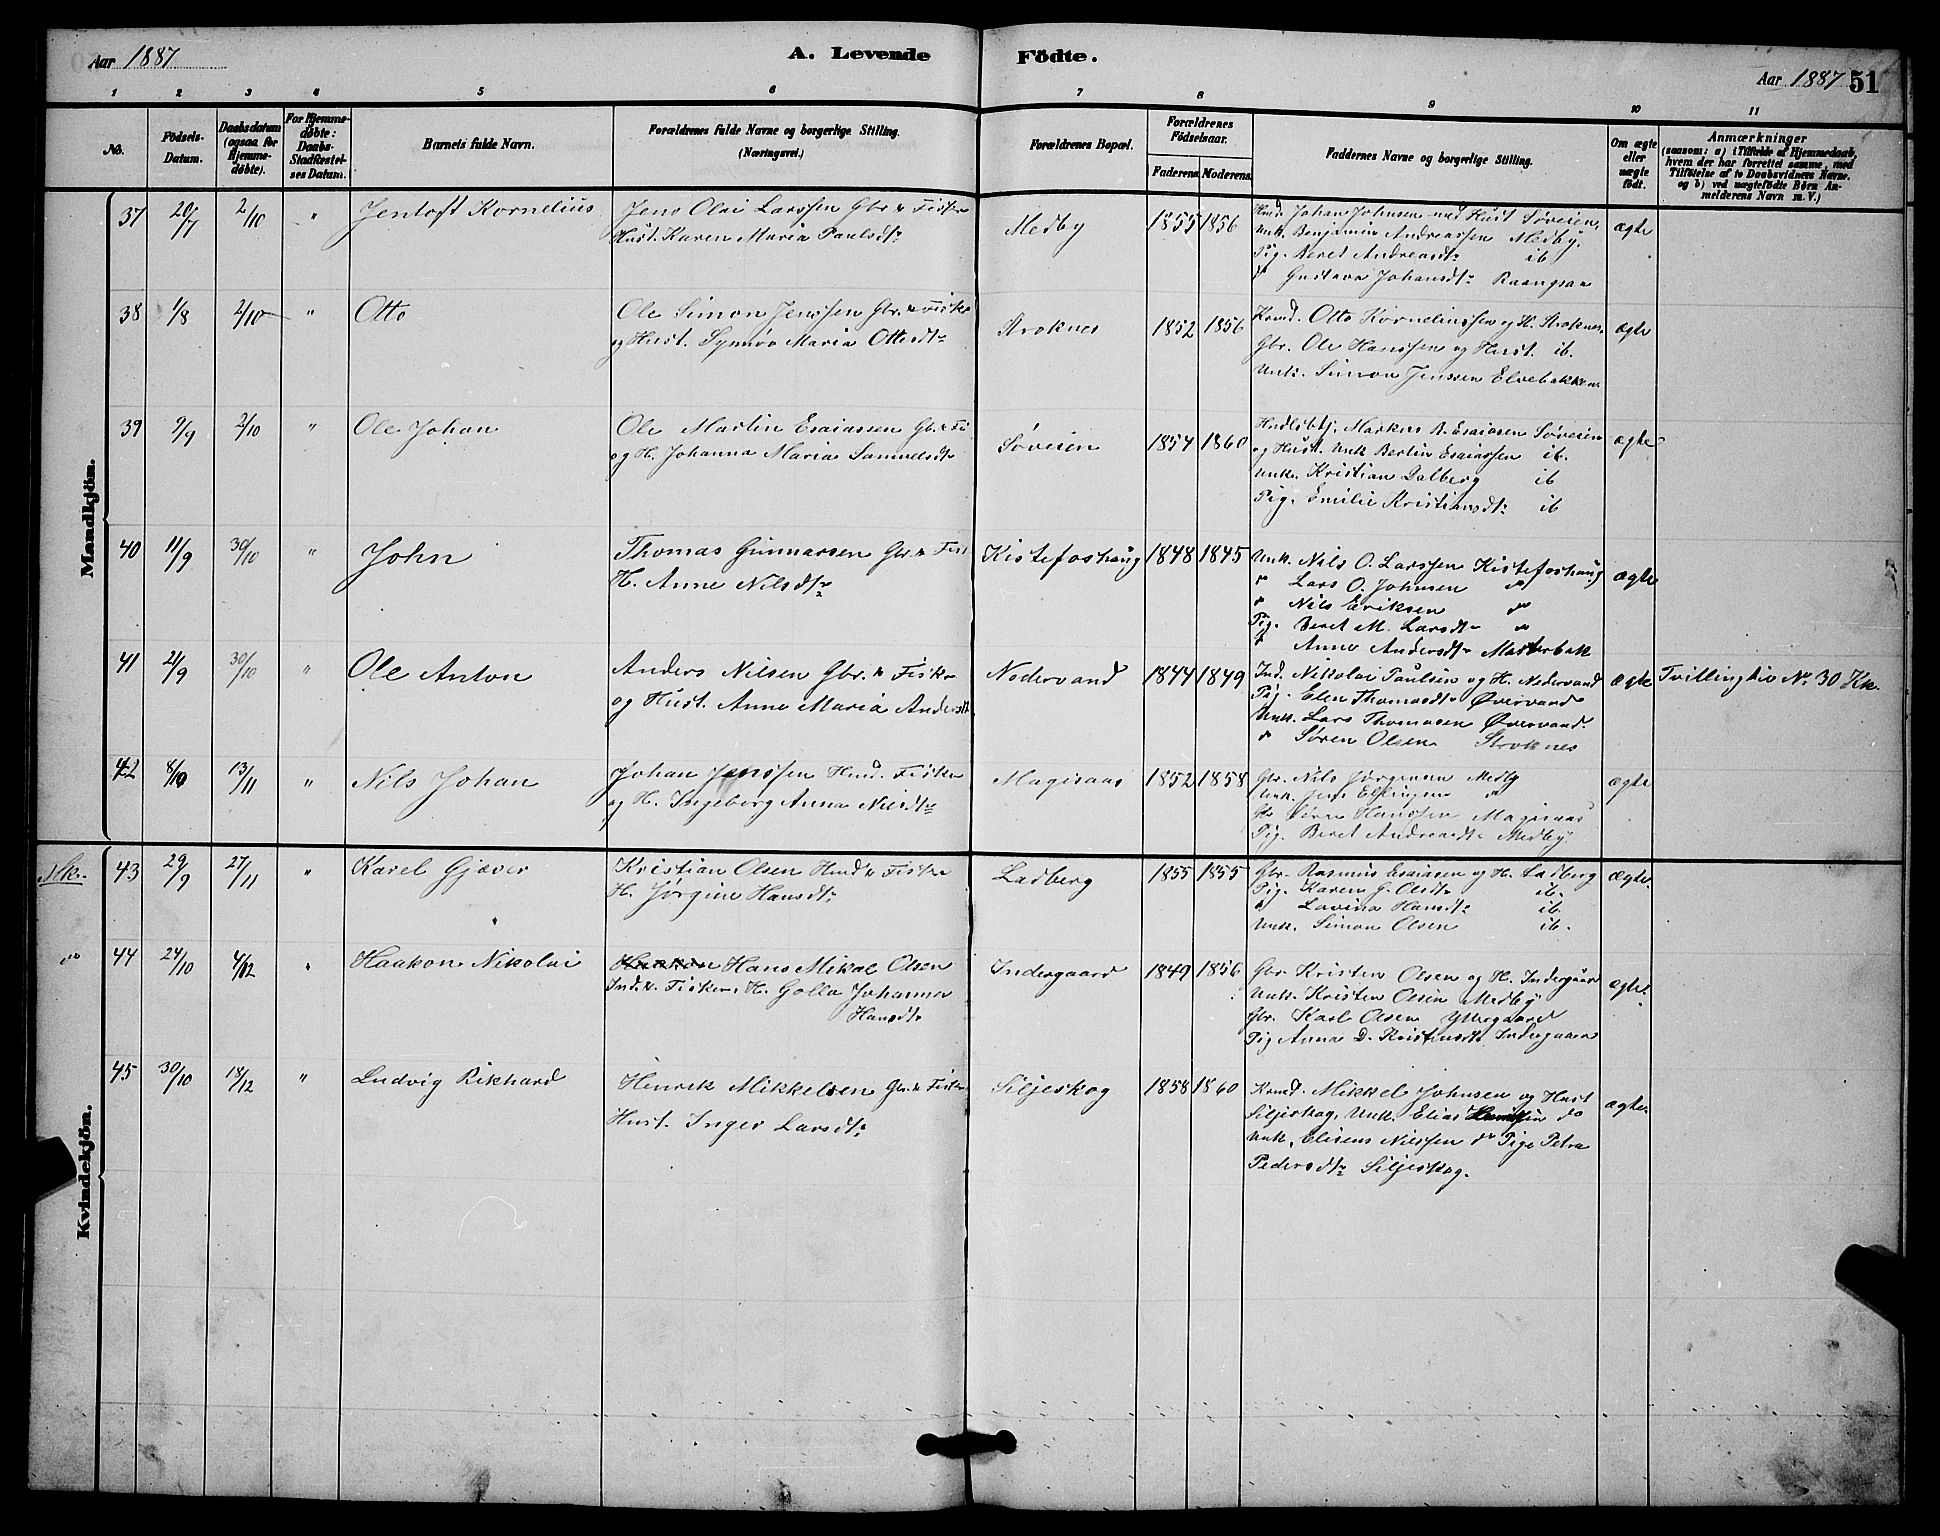 Aar 1887
A. Levende Födte.
Aar 1887 51
1 2 3 4 5 6 7 8 9 10 11
No.
Födsels-Datum.
Daabsdatum (ogsaa for Hjemme-döbte).
For Hjemme-döbte: Daabs-Stadfæstel-ses Datum.
Barnets fulde Navn.
Forældrenes fulde Navne og borgerlige Stilling. (Næringsvei.)
Forældrenes Bopæl.
Forældrenes Födselsaar.
Faderens Moderens.
Faddernes Navne og borgerlige Stilling.
Om ægte eller uægte födt.
Anmærkninger
(saasom: a) i Tilfælde af Hjemmedaab, hvem der har forrettet samme, med Tilföielse af to Daabsvidners Navne. og b) ved uægtefödte Börn An-melderens Navn m. V.)
Mandkjön.
37 20/7 2/10 " Jentoft Kornelius
Jens Olai Larssen Gbr. & Fisker
Hust. Karen Maria Paulsdtr
Medby 1855 1856
Hmd. Johan Johnsen med Hust Søveien.
Unk. Benjamin Andreassen Medby.
Pig. Beret Andreasdtr ib
" Gustava Johansdtr
ægte
38 1/8 2/10 " Otto
Ole Simon Jenssen Gbr. & Fisker
og Hust. Synnøv Maria Ottesdtr
Stroknes 1852 1856
Kmd. Otto Korneliussen og H. Stroknes.
Gbr. Ole Hanssen og Hust. ib.
Unk. Simon Jenssen Elvebakken
ægte
39 9/9 2/10 " Ole Johan
Ole Martin Esaiassen Gbr. & Fi
og H. Johanna Maria Samuelsdtr
Søveien 1854 1860
Markus B. Esaiasen Søveien
og Hust. Unk Berlin Esaiassen ib.
Unk. Kristian Dalberg ib
Pig. Emilie Kristiansdtr ib
ægte
40 11/9 30/10 " John
Thomas Gunnarsen Gbr. & Fisk
H. Anne Nilsdtr
Kistefoshaug 1848 1845
Unk. Nils O. Larssen Kistefoshaug
" Lars O. Johnsen "
" Nils Eriksen "
Pig. Beret M. Larsdtr "
" Anne Andersdtr Masterbak
ægte
41 2/9 30/10 " Ole Anton
Anders Nilsen Gbr. & Fisker
og Hust. Anne Maria Andersdtr
Nedervand 1844 1849
Ind. Nikolai Paulsen og H. Nedervand
Pig. Elen Thomasdtr Øvervand
Unk. Lars Thomasen Øvervand
" Søren Olsen Stroknes
ægte Tvilling til No 30 Kk.
42 8/10 13/11 " Nils Johan
Johan Jenssen Hmd. Fisker
og H. Ingeborg Anna Nilsdtr
Magisaas 1852 1858
Gbr. Nils Jørgensen Medby
Unk. Jens Ellingsen "
Gbr Hanssen Magisaas
Pig. Beret Andreasdtr Medby
ægte
Mk.
43 29/9 27/11 " Karel Gjæver
Kristian Olsen Hmd & Fisker
H. Jørgine Hansdtr
Ladberg 1855 1855
Gbr. Rasmus Esaiasen og H. Ladberg
Pig. Karen G. Olsdtr ib.
" Lavina Hansdtr ib.
Unk. Simon Olsen ib.
ægte
do 44 24/10 4/12 " Haakon Nikolai
Hans Mikal Olsen
Ind. & Fisker. H. Golla Johanna
Hansdtr
Indergaard 1849 1856
Gbr. Kristen Olsen og H. Indergaard
Unk. Kristen Olsen Medby
Gbr. Karl Olsen Yttergaard
Pig Anna D. Kristensdtr Indergaard
ægte
45 30/10 18/12 " Ludvig Rikhard
Henrik Mikkelsen Gbr. & Fisker
Hust. Inger Larsdtr
Siljeskog 1858 1860
Kmd. Mikkel Johnsen og Hust
Siljeskog, Unk. Elias do
Unk. Elisens Nilssen do Pige Petra
Pedersdtr Siljeskog.
ægte
Kvindekjön.